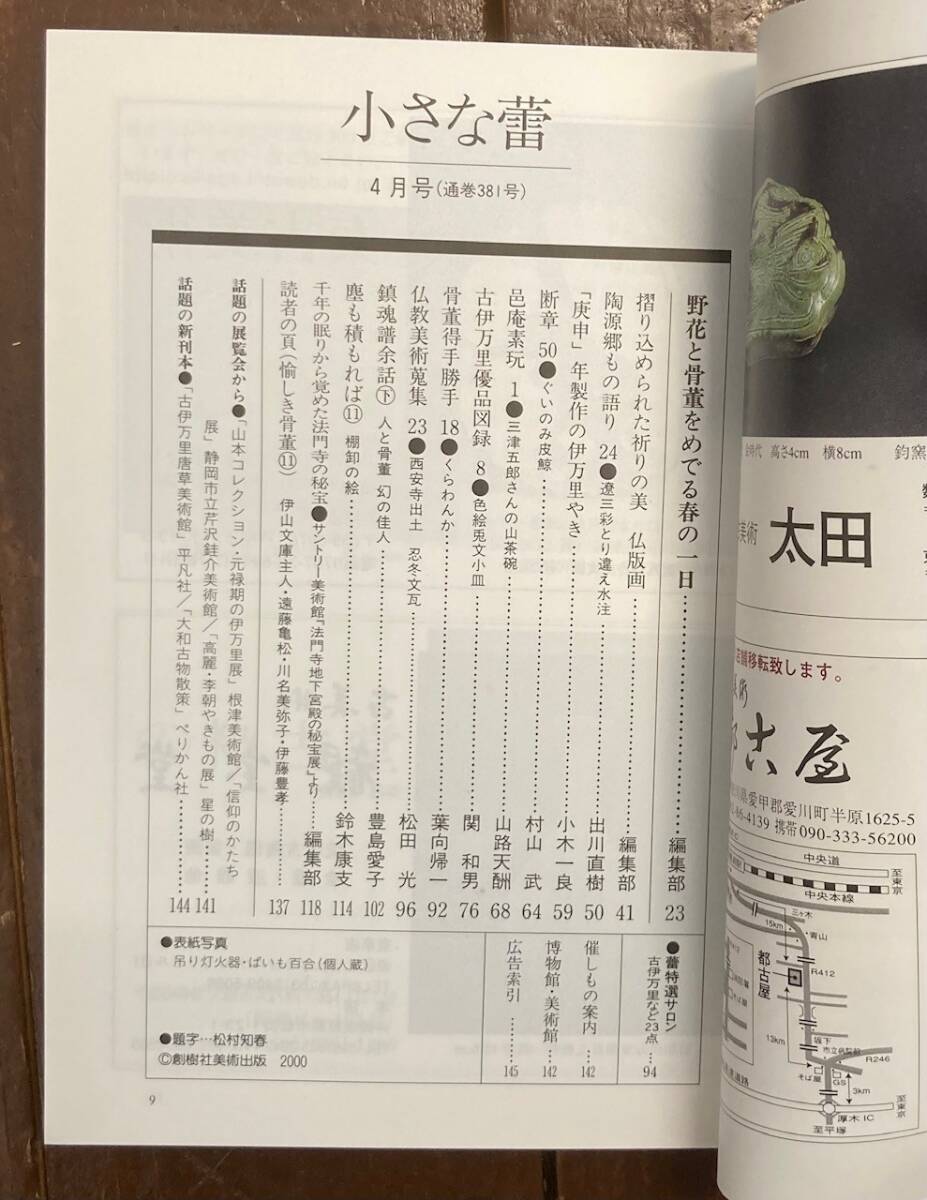 小さな蕾
4月号(通巻381号)
野花と骨董をめでる春の一日…………編集部 23
摺り込められた祈りの美 仏版画…………編集部 41
陶源郷もの語り 24●遼三彩とり違え水注…………出川直樹 50
「庚申」年製作の伊万里やき…………小木一良 59
断章 50●ぐいのみ皮鯨…………村山 武 64
邑庵素玩 1●三津五郎さんの山茶碗…………山路天酬 68
古伊万里優品図録 8●色絵兎文小皿…………関 和男 76
骨董得手勝手 18●くらわんか…………葉向帰一 92
仏教美術蒐集 23●西安寺出土 忍冬文瓦…………松田 光 96
鎮魂譜余話㊦ 人と骨董 幻の佳人…………豊島愛子 102
塵も積もれば⑪ 棚卸の絵…………鈴木康支 114
千年の眠りから覚めた法門寺の秘宝●サントリー美術館「法門寺地下宮殿の秘宝展」より……編集部 118
読者の頁(愉しき骨董⑪) 伊山文庫主人・遠藤亀松・川名美弥子・伊藤豊孝………137
話題の展覧会から●「山本コレクション・元禄期の伊万里展」根津美術館/「信仰のかたち
展」静岡市立芹沢銈介美術館/「高麗・李朝やきもの展」星の樹………141
話題の新刊本●「古伊万里唐草美術館」平凡社/「大和古物散策」ぺりかん社…………144
●蕾特選サロン
古伊万里など23点……94
催しもの案内……142
博物館・美術館……142
広告索引…………145
●表紙写真
吊り灯火器・ばいも百合(個人蔵)
●題字…松村知春
©創樹社美術出版 2000
9
金時代 高さ4cm 横8cm 鈞窯
美術 太田
店舗移転致します。
古屋
県愛甲郡愛川町半原1625-5
86-4139 携帯090-333-56200
中央道
至東京
中央本線
三ヶ木
15km
青山
都古屋
R412
13km
坂下
市立病院前
R246
そば屋
GS
3km
厚木IC
至東京
至平塚